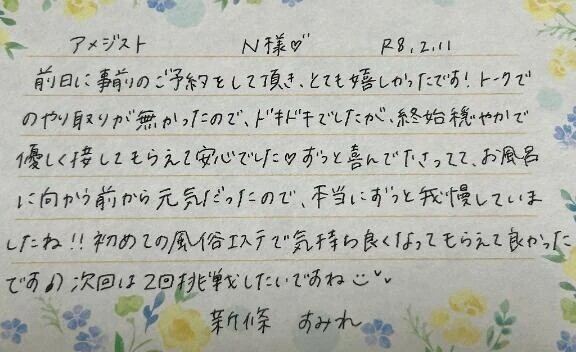 アメジスト N様♡ R8.2.11
前日に事前のご予約をして頂き、とても嬉しかったです！トークで
のやり取りが無かったので、ドキドキでしたが、終始穏やかで
優しく接してもらえて安心でした♡ずっと喜んで下さってて、お風呂
に向かう前から元気だったので、本当にずっと我慢していま
したね！！初めての風俗エステで気持ち良くなってもらえて良かった
です♪次回は2回挑戦したいですね
新條 すみれ